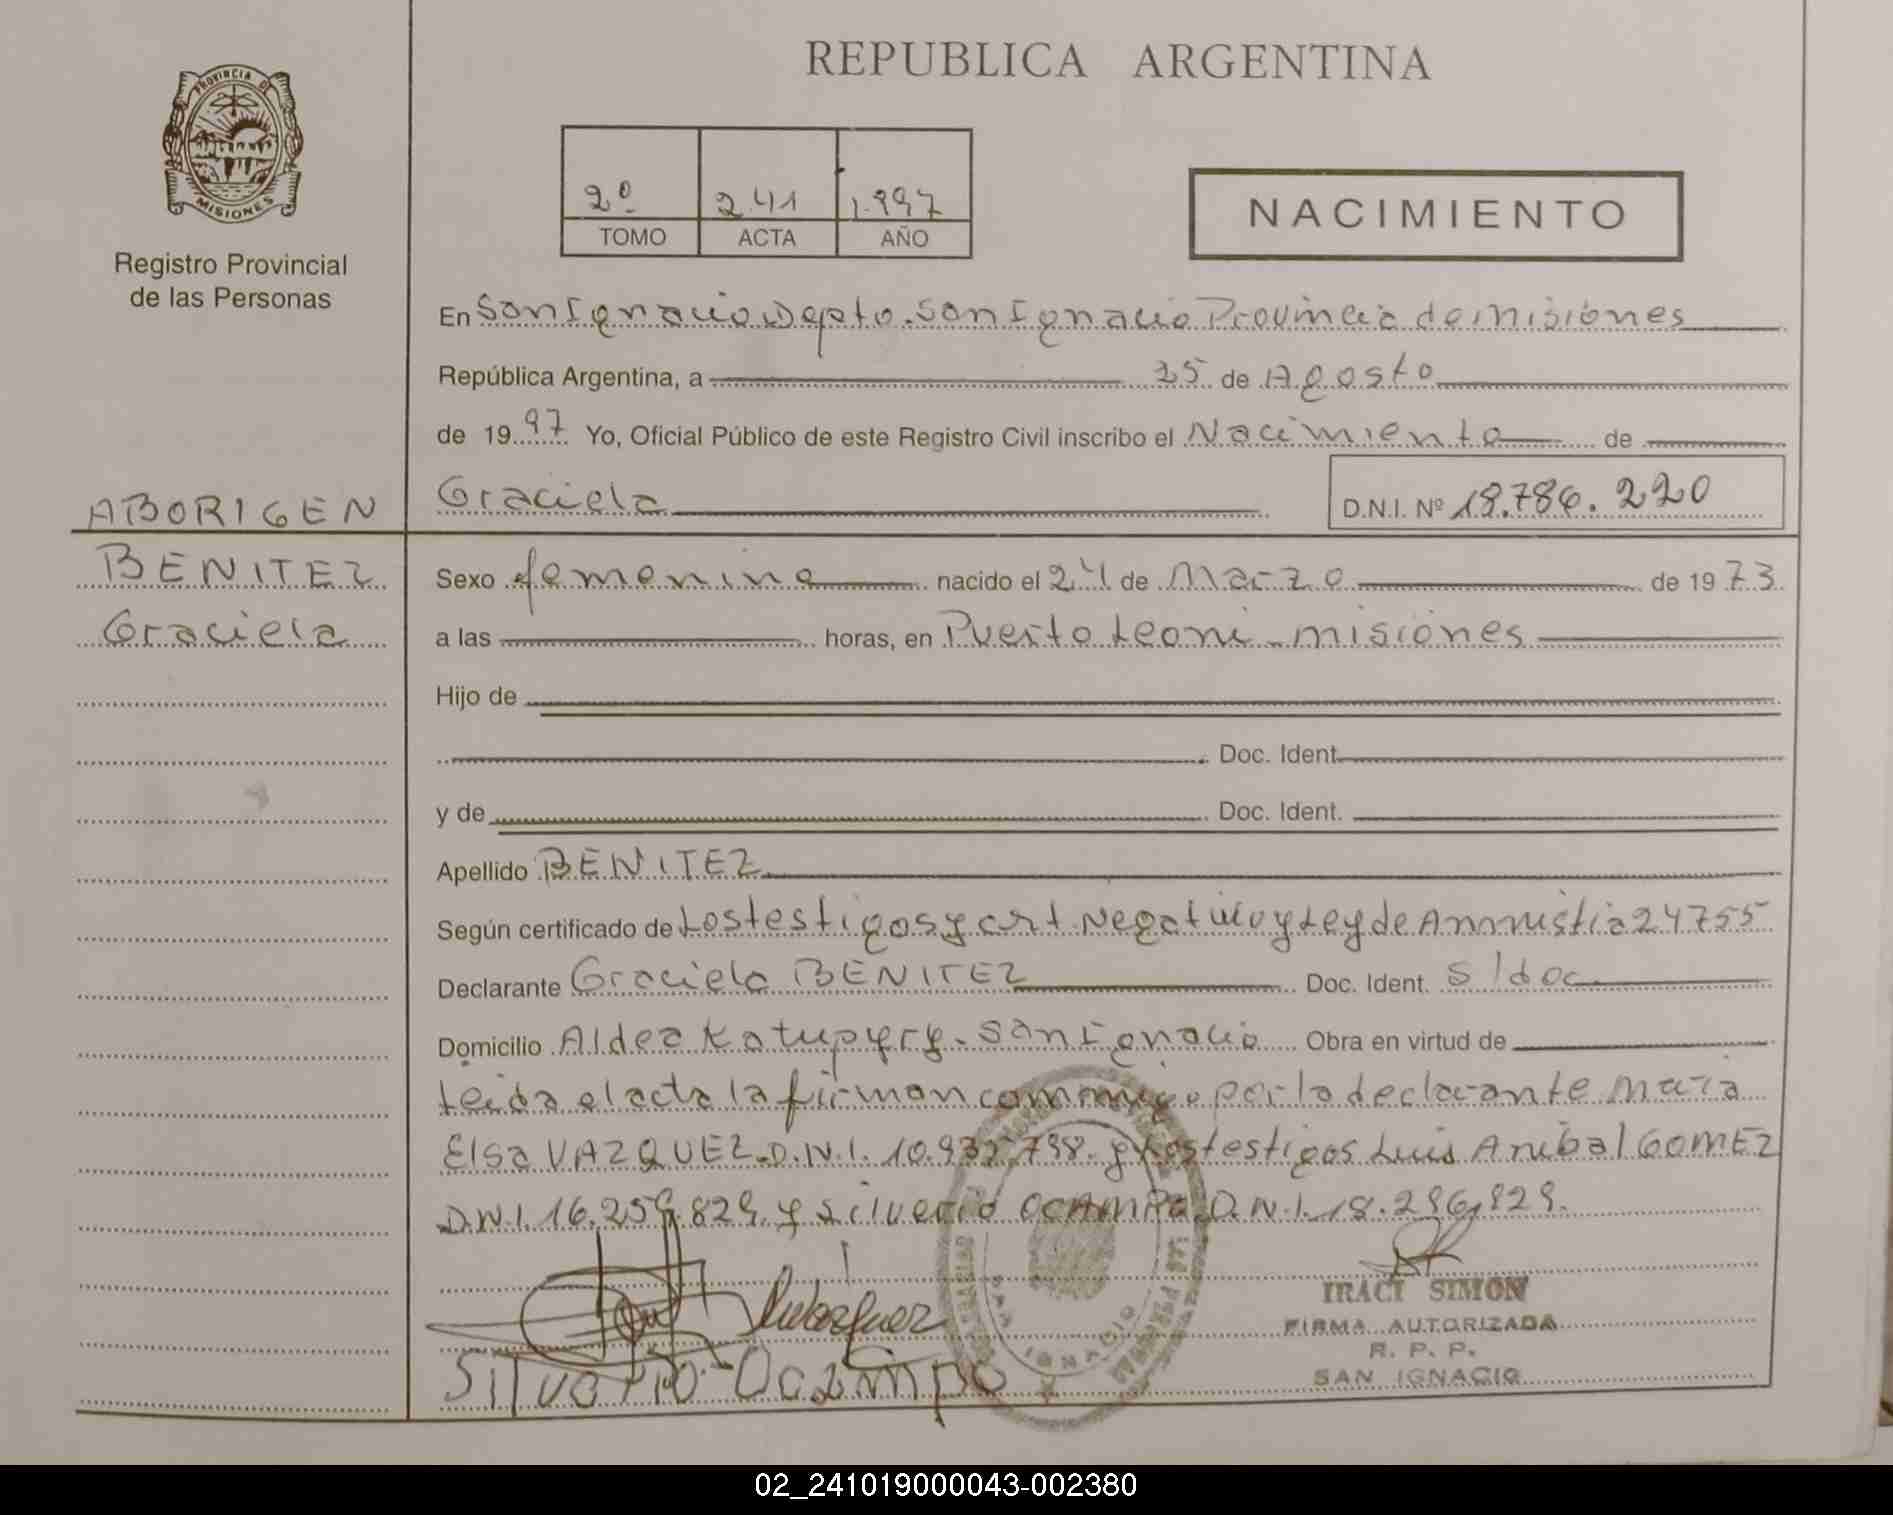 REPUBLICA ARGENTINA
PROVINCIA DE
MISIONES
Registro Provincial
de las Personas
2º 241 1.997
TOMO ACTA AÑO
NACIMIENTO
En San Ignacio Depto. San Ignacio Provincia de misiones
República Argentina, a 25 de Agosto
de 1997 Yo, Oficial Público de este Registro Civil inscribo el Nacimiento de
Graciela D.N.I. Nº 18.786.220
ABORIGEN
BENITEZ
Graciela
Sexo femenino nacido el 24 de Marzo de 1973
a las horas, en Puerto Leoni - misiones
Hijo de
Doc. Ident.
y de Doc. Ident.
Apellido BENITEZ
Según certificado de Los testigos y cert. Negativo y Ley de Amnistia 24755
Declarante Graciela BENITEZ Doc. Ident. s/doc
Domicilio Aldea Katupyry - San Ignacio Obra en virtud de
Leida el acta la firman conmigo por la declarante Maria
Elsa VAZQUEZ D.N.I. 10.932.798. y los testigos Luis Anibal GOMEZ
D.N.I. 16.259.829. y Silverio OCAMPO D.N.I. 18.296.829.
Silverio Ocampo
SAN IGNACIO
IRACI SIMON
FIRMA AUTORIZADA
R. P. P.
SAN IGNACIO
02_241019000043-002380